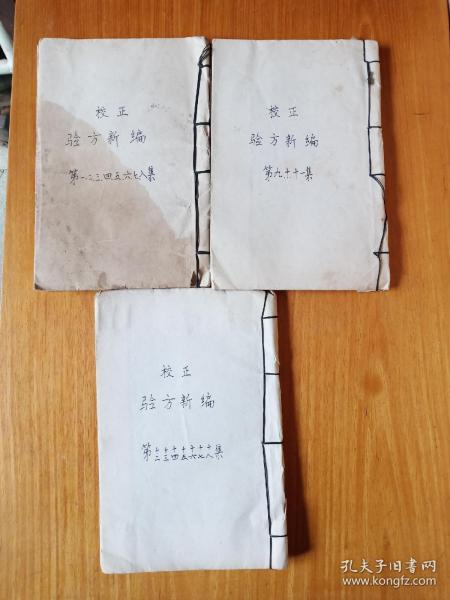 校正
验方新编
第一二三四五六七八集
校正
验方新编
第九十十一集
校正
验方新编
第十二十三十四十五十六十七十八集
孔夫子旧书网
www.kongfz.com